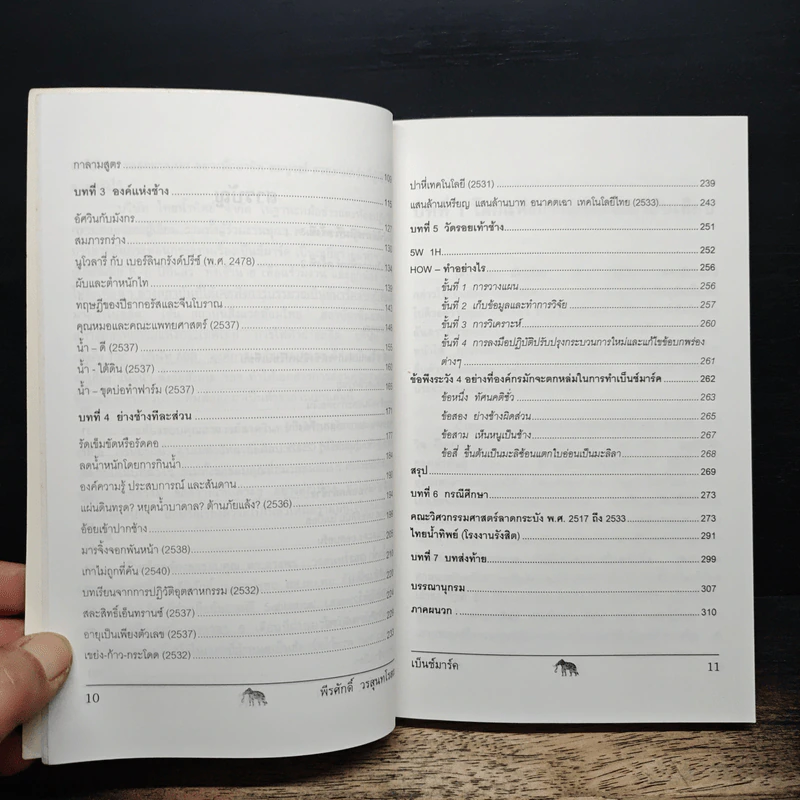 กาลามสูตร 109
บทที่ 3 องค์แห่งช้าง
อัศวินกับมังกร 127
สมภารกร่าง
นูโวลารี่ กับ เบอร์ลินกรังด์ปรีซ์ (พ.ศ. 2478) 134
ผับและตำหนักไท 139
ทฤษฎีของปีธากอรัสและจีนโบราณ 143
คุณหมอและคณะแพทยศาสตร์ (2537)
น้ำ – ดี (2537)
น้ำ - ใต้ดิน (2537)
น้ำ – ขุดบ่อทำฟาร์ม (2537)
บทที่ 4 ย่างช้างทีละส่วน 171
รัดเข็มขัดหรือรัดคอ
ลดน้ำหนักโดยการกินน้ำ
องค์ความรู้ ประสบการณ์ และสันดาน
แผ่นดินทรุด? หยุดน้ำบาดาล? ต้านภัยแล้ง? (2536)
อ้อยเข้าปากช้าง
มารจิ้งจอกพันหน้า (2538)
เกาไม่ถูกที่คัน (2540)
บทเรียนจากการปฏิวัติอุตสาหกรรม (2532) 224
สละสิทธิ์เอ็นทรานซ์ (2537)
อายุเป็นเพียงตัวเลข (2537)
เขย่ง-ก้าว-กระโดด (2532)
10 พีรศักดิ์
ปาหี่เทคโนโลยี (2531) 239
แสนล้านเหรียญ แสนล้านบาท อนาคตเฉา เทคโนโลยีไทย (2533) 243
บทที่ 5 วัดรอยเท้าช้าง 251
5W 1H 252
HOW – ทำอย่างไร 256
ขั้นที่ 1 การวางแผน 256
ขั้นที่ 2 เก็บข้อมูลและทำการวิจัย 257
ขั้นที่ 3 การวิเคราะห์ 260
ขั้นที่ 4 การลงมือปฏิบัติปรับปรุงกระบวนการใหม่และแก้ไขข้อบกพร่อง
ต่างๆ 261
ข้อพึงระวัง 4 อย่างที่องค์กรมักจะตกหล่มในการทำเบ็นช์มาร์ค 262
ข้อหนึ่ง ทัศนคติชั่ว 263
ข้อสอง ย่างช้างผิดส่วน 265
ข้อสาม เห็นหนูเป็นช้าง 267
ข้อสี่ ขึ้นต้นเป็นมะลิซ้อนแตกใบอ่อนเป็นมะลิลา 268
สรุป 269
บทที่ 6 กรณีศึกษา 273
คณะวิศวกรรมศาสตร์ลาดกระบัง พ.ศ. 2517 ถึง 2533 273
ไทยน้ำทิพย์ (โรงงานรังสิต) 291
บทที่ 7 บทส่งท้าย 299
บรรณานุกรม 307
ภาคผนวก 310
เบ็นช์มาร์ค 11